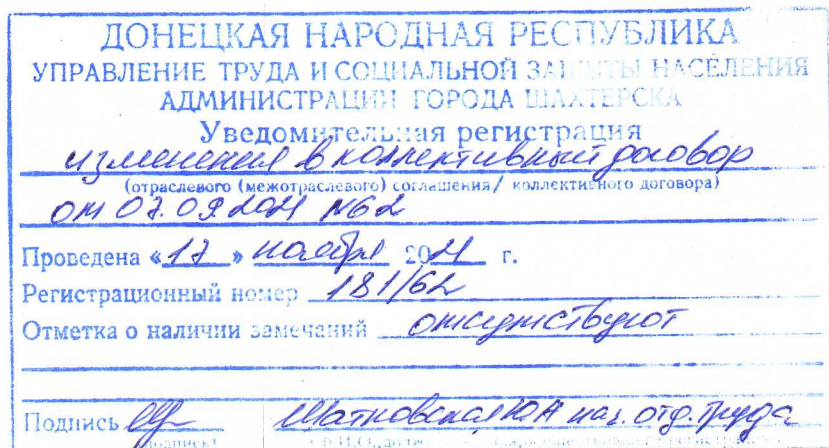 ДОНЕЦКАЯ НАРОДНАЯ РЕСПУБЛИКА
УПРАВЛЕНИЕ ТРУДА И СОЦИАЛЬНОЙ ЗАЩИТЫ НАСЕЛЕНИЯ
АДМИНИСТРАЦИИ ГОРОДА ШАХТЕРСКА
Уведомительная регистрация
изменения в коллективный договор
(отраслевого (межотраслевого) соглашения/ коллективного договора)
от 07.09.2021 №62
Проведена «17» ноября 2021 г.
Регистрационный номер 181/62
Отметка о наличии замечаний отсутствуют
Подпись Шатковская ЮА нач. отд. труда
(подпись)